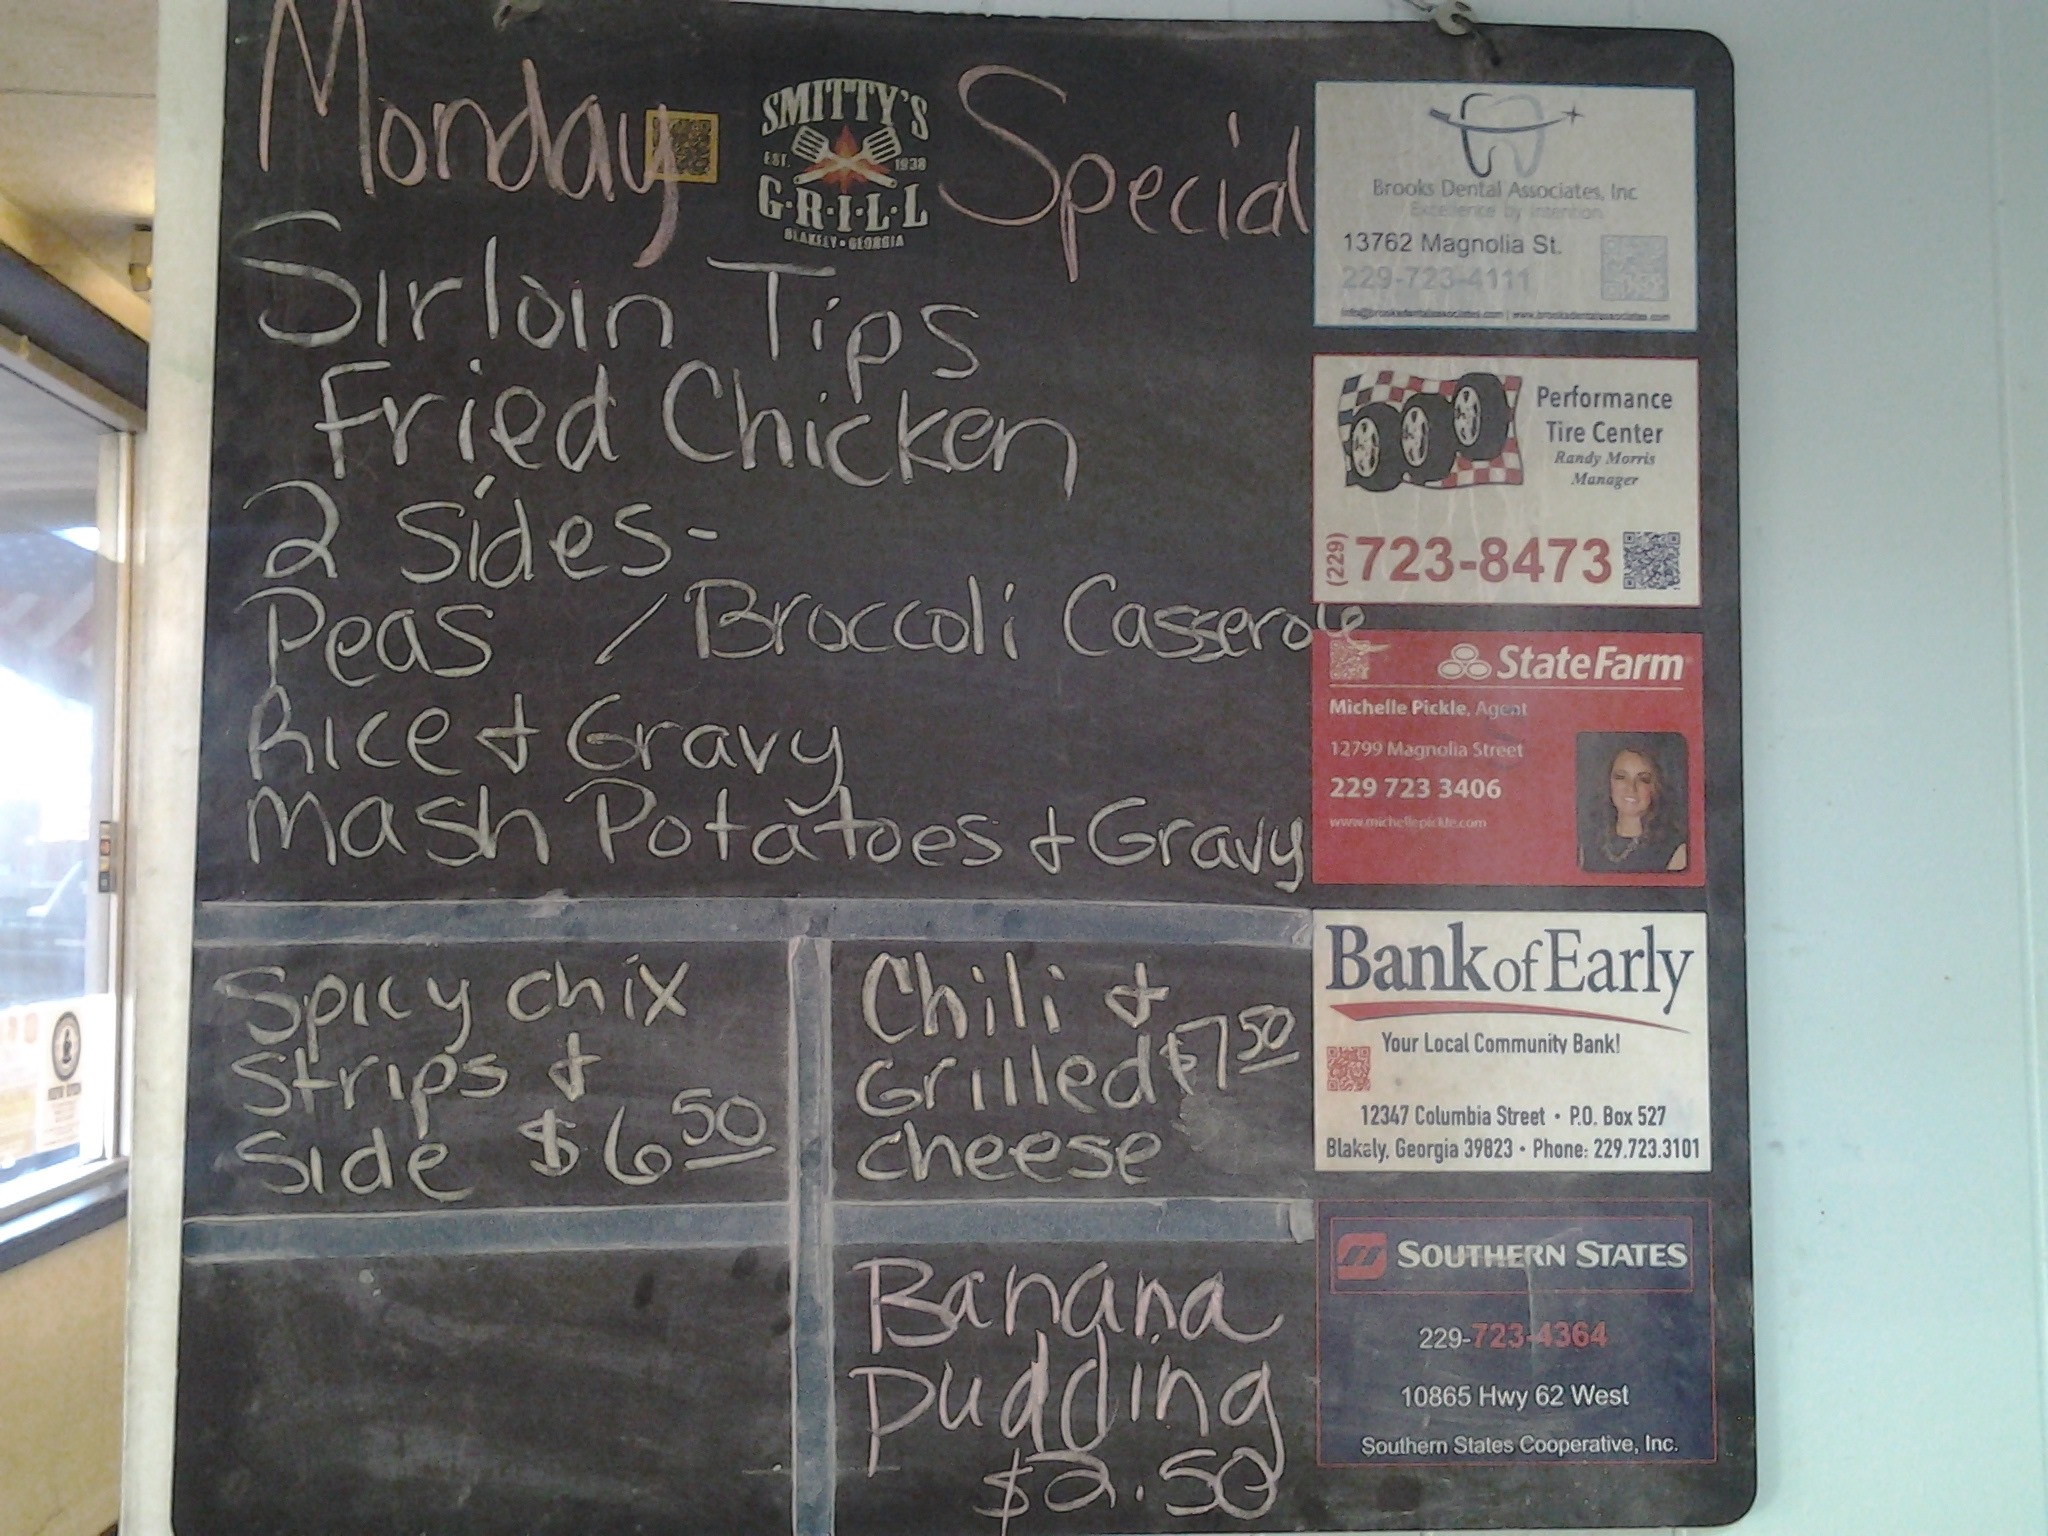 Monday Special
SMITTY'S
EST. 1938
G·R·I·L·L
BLAKELY • GEORGIA
Sirloin Tips
Fried Chicken
2 Sides-
Peas / Broccoli Casserole
Rice & Gravy
Mash Potatoes & Gravy
Spicy chix
Strips &
Side $6 50
Chili &
Grilled $7 50
cheese
Banana
Pudding
$2.50
Brooks Dental Associates, Inc
Excellence by Intention
13762 Magnolia St.
229-723-4111
info@brooksdentalassociates.com | www.brooksdentalassociates.com
Performance
Tire Center
Randy Morris
Manager
(229) 723-8473
StateFarm
Michelle Pickle, Agent
12799 Magnolia Street
229 723 3406
www.michellepickle.com
Bank of Early
Your Local Community Bank!
12347 Columbia Street • P.O. Box 527
Blakely, Georgia 39823 • Phone: 229.723.3101
SOUTHERN STATES
229-723-4364
10865 Hwy 62 West
Southern States Cooperative, Inc.